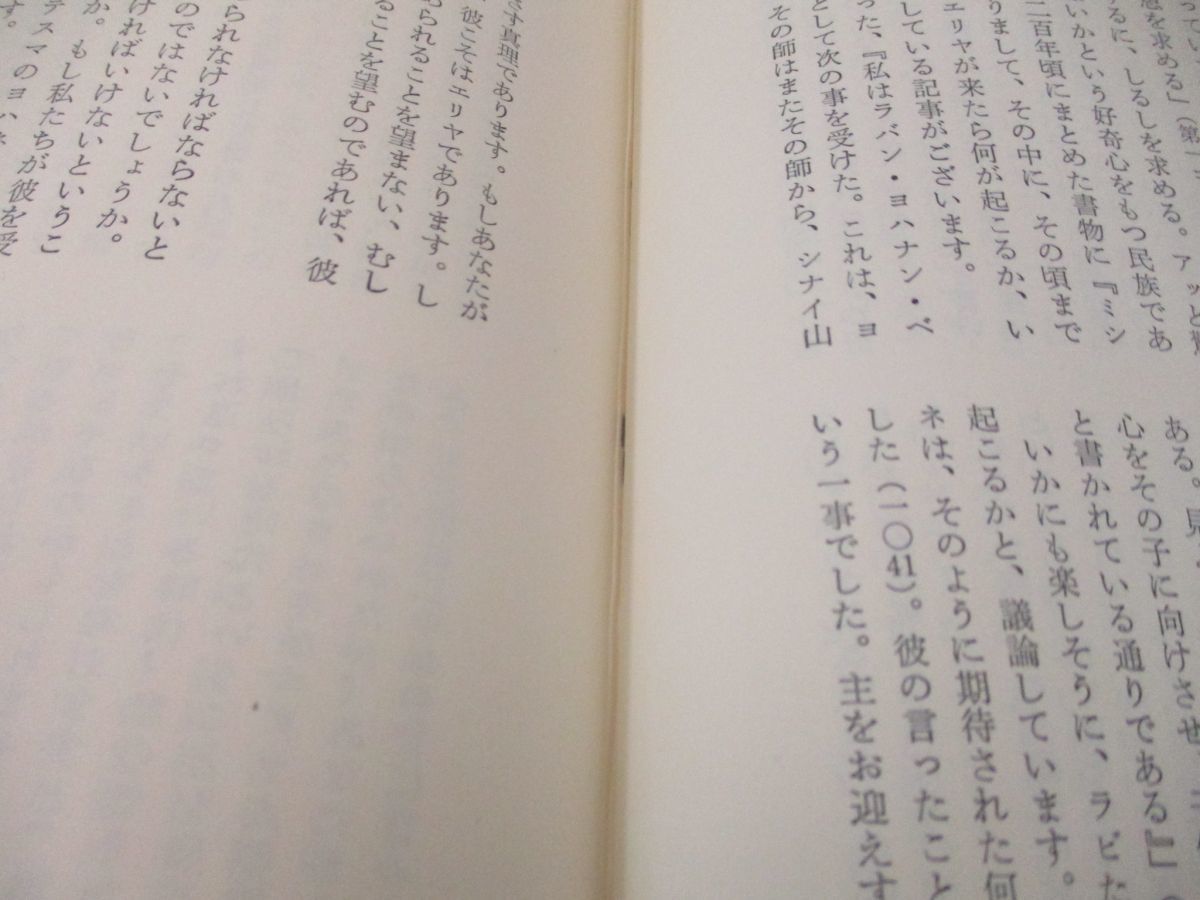 恵を求める」（第一コ
するに、しるしを求める。アッと
ないかという好奇心をもつ民族であ
二百年頃にまとめた書物に『ミシ
りまして、その中に、その頃まで
エリヤが来たら何が起こるか、い
している記事がございます。
った、『私はラバン・ヨハナン・ベ
として次の事を受けた。これは、ヨ
その師はまたその師から、シナイ山
ある。見
心をその子に向けさせ、
と書かれている通りである』」
いかにも楽しそうに、ラビた
起こるかと、議論しています。
ネは、そのように期待された何
した（一〇41）。彼の言ったこと
いう一事でした。主をお迎えす
さす真理であります。もしあなたが
彼こそはエリヤであります。し
められることを望まない、むし
ることを望むのであれば、彼
られなければならないと
のではないでしょうか。
ければいけないというこ
か。もし私たちが彼を受
テスマのヨハネ
す。